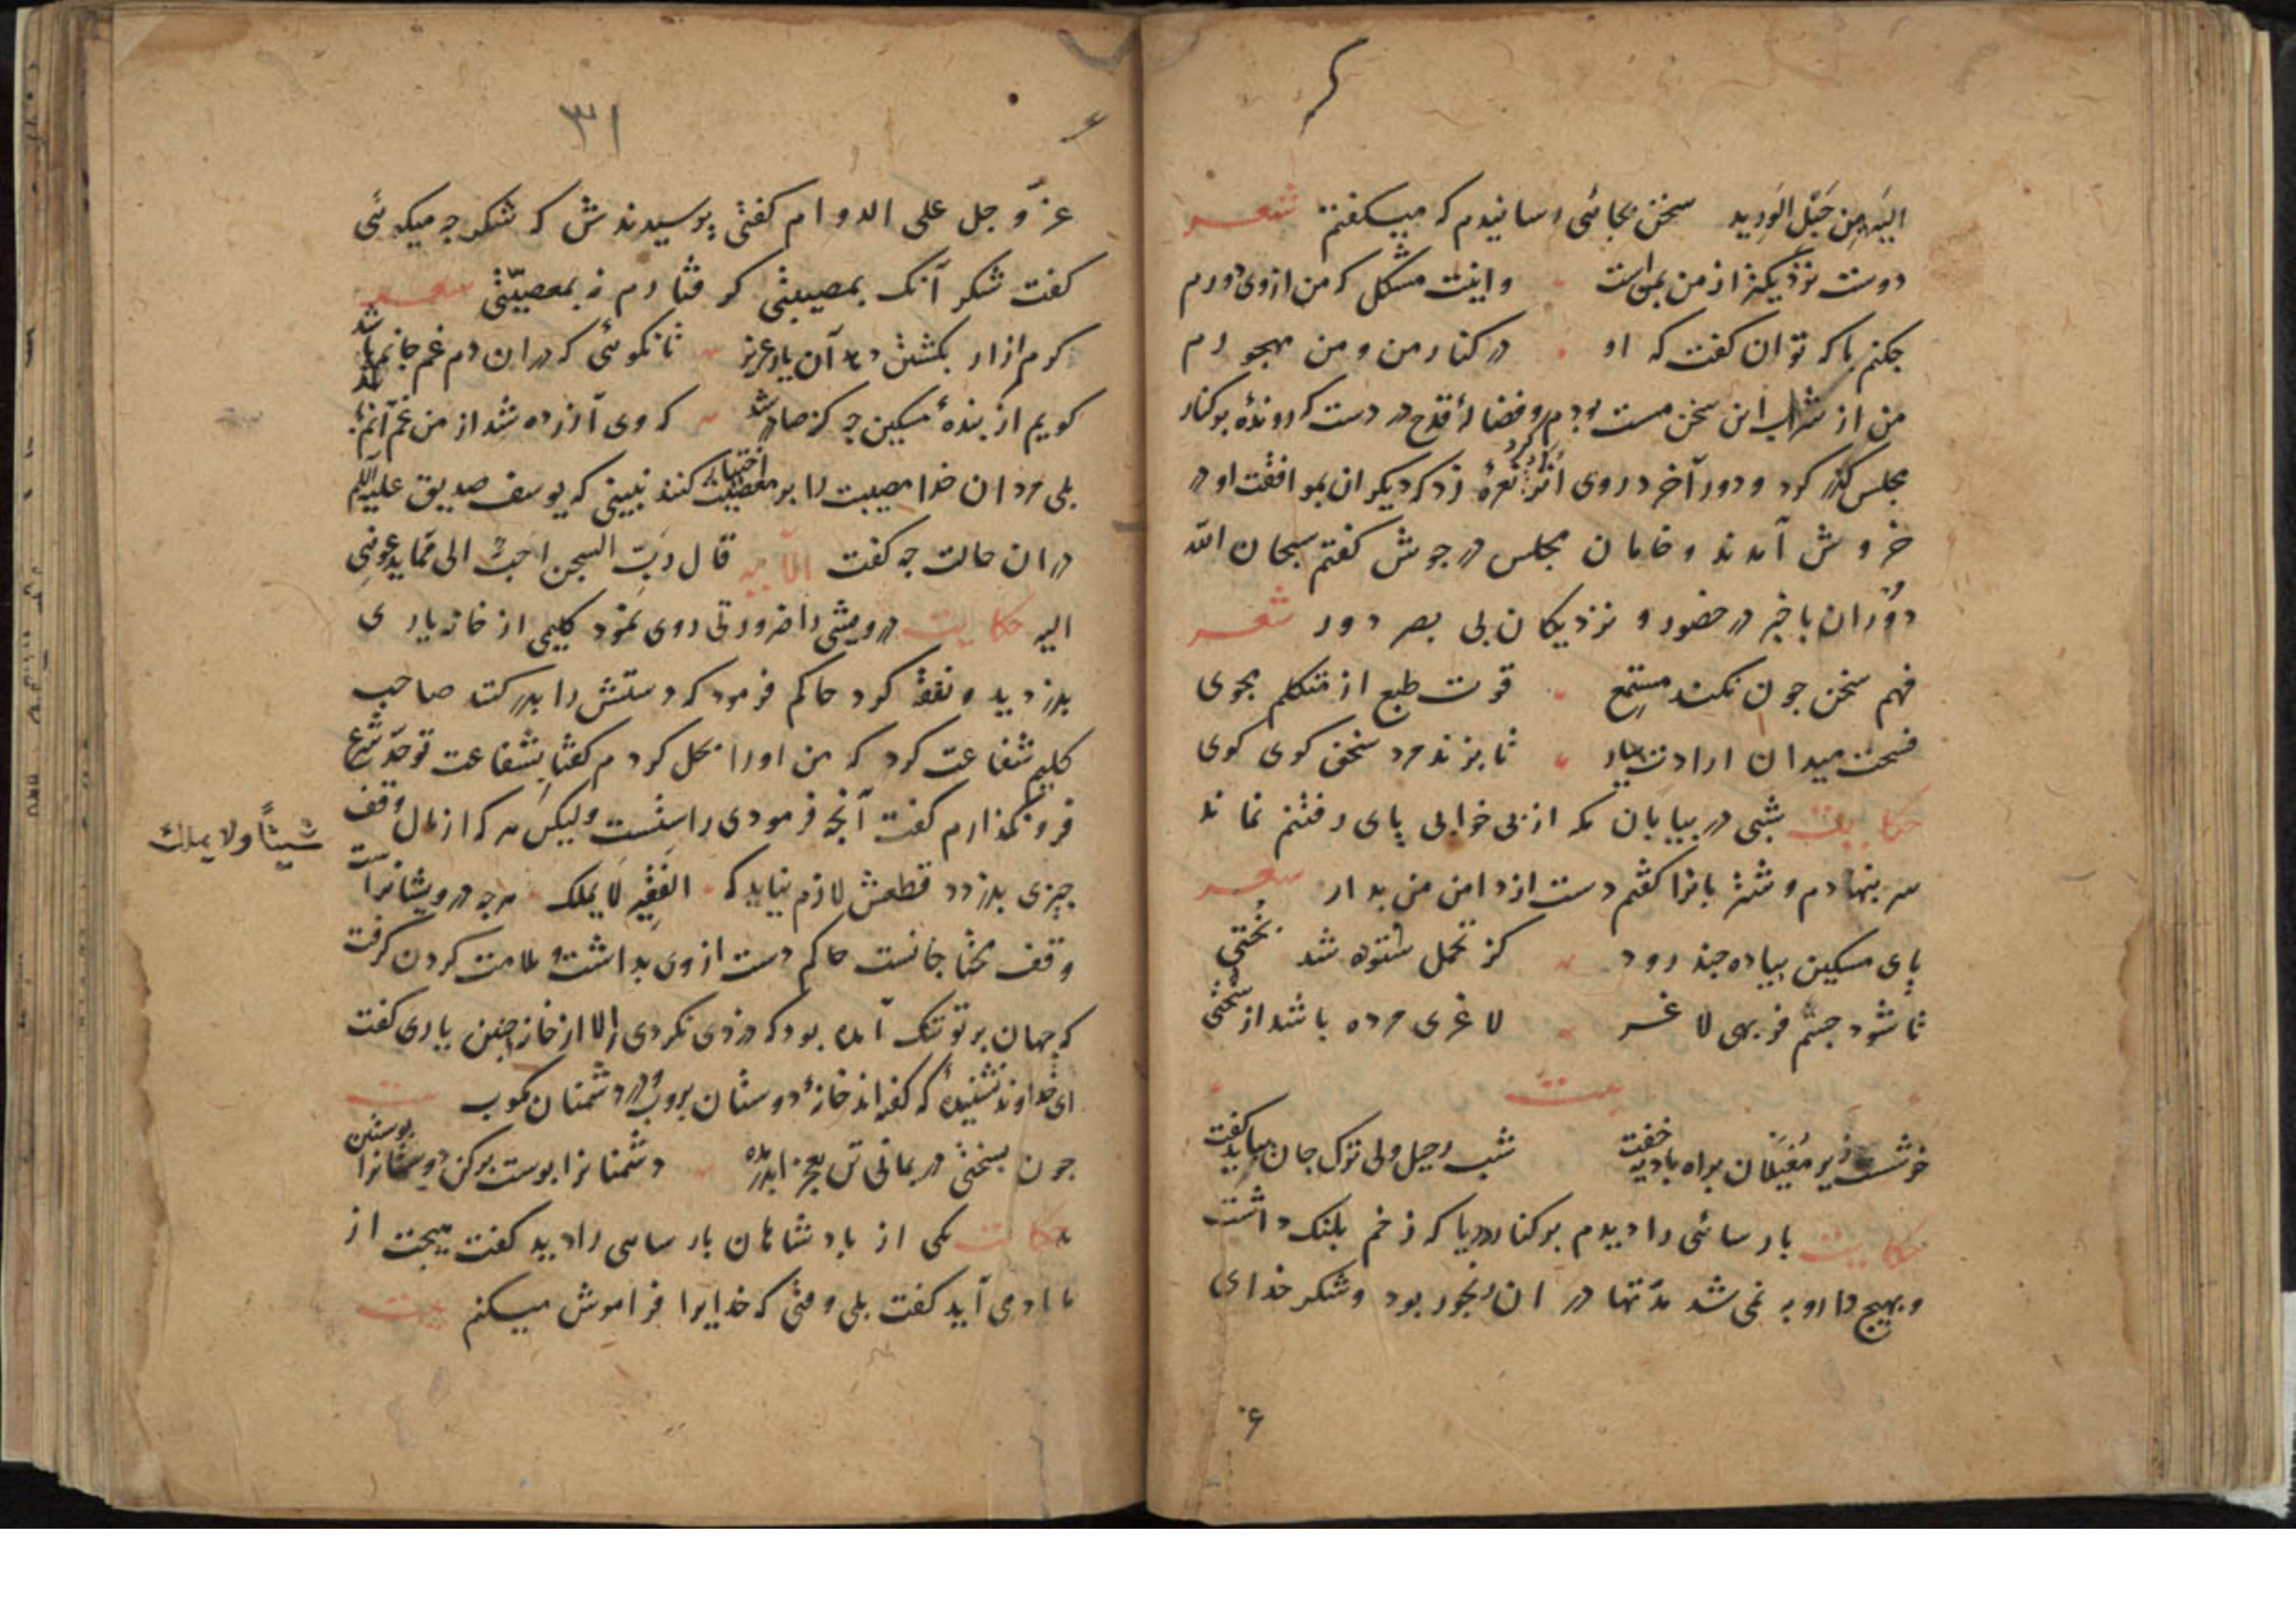 الیه من حبل الورید سخن بجائی رسانیدم که میگفتم شعر
دوست نزدیکتر از من بمن است واینت مشکل که من ازوی دورم
جکنم با که توان کفت که او در کنار من و من مهجورم
من از شراب این سخن مست بودم و فضالۀ قدح در دست که روندۀ بر کنار
مجلس کذر کرد و دور آخر در وی اثر کرد نعرۀ زد که دیکران بموافقت او در
خروش آمدند و خامان مجلس در جوش کفتم سبحان الله
دوران باخبر در حضور و نزدیکان بی بصر دور شعر
فهم سخن جون نکند مستمع قوت طبع از متکلم مجوی
فسحت میدان ارادت بیار تا بزند مرد سخن کوی کوی
حکایت شبی در بیابان مکه از بی خوابی پای رفتنم نماند
سر بنهادم و شتربانرا کفتم دست از دامن من بدار شعر
پای مسکین بیاده جند رود کز تحمل ستوه شد بختی
تا شود جسم فربهی لاغر لاغری مرده باشد از سختی
بیت
خوشست زیر مغیلان براه بادیه خفت شب رحیل ولی ترک جان بباید کفت
حکایت بارسائی را دیدم بر کنار دریا که زخم بلنک داشت
و بهیج دارو به نمی شد مدتها در ان رنجور بود و شکر خدای
۳۱
عز و جل علی الدوام کفتی پرسیدندش که شکر جه میکوئی
کفت شکر آنک بمصیبتی کرفتارم نه بمعصیتی شعر
کرم ازار بکشتن دهد آن یار عزیز تا نکوئی که دران دم غم جانم باشد
کویم از بندۀ مسکین جه کنه صادر شد که وی آزرده شد از من غم آنم باشد
بلی مردان خدا مصیبت را بر معصیت اختیار کنند نبینی که یوسف صدیق علیه السلم
دران حالت جه کفت الآیه قال رب السجن احب الی مما یدعوننی
الیه حکایت درویشی را ضرورتی روی نمود کلیمی از خانه یاری
بدزدید و نفقه کرد حاکم فرمود که دستش را بدر کنند صاحب
کلیم شفاعت کرد که من اورا بحل کردم کفتا بشفاعت تو حد شرع
فرو نکذارم کفت آنجه فرمودی راستست ولیکن هر که از مال وقف
جیزی بدزدد قطعش لازم نیاید که الفقیر لا یملک هر جه درویشانراست
شیئا ولا یملک
وقف محتاجانست حاکم دست از وی بداشت و ملامت کردن کرفت
که جهان بر تو تنک آمده بود که دزدی نکردی الا از خانه جنین یاری کفت
ای خداوند نشنیدۀ که کفته اند خانۀ دوستان بروب و در دشمنان مکوب بیت
جون بسختی در بمانی تن بعجز اندر مده دشمنانرا بوست برکن دوستانرا بوستین
حکایت یکی از بادشاهان بارسایی را دید کفت هیجت از
ما یاد می آید کفت بلی وقتی که خدایرا فراموش میکنم بیت